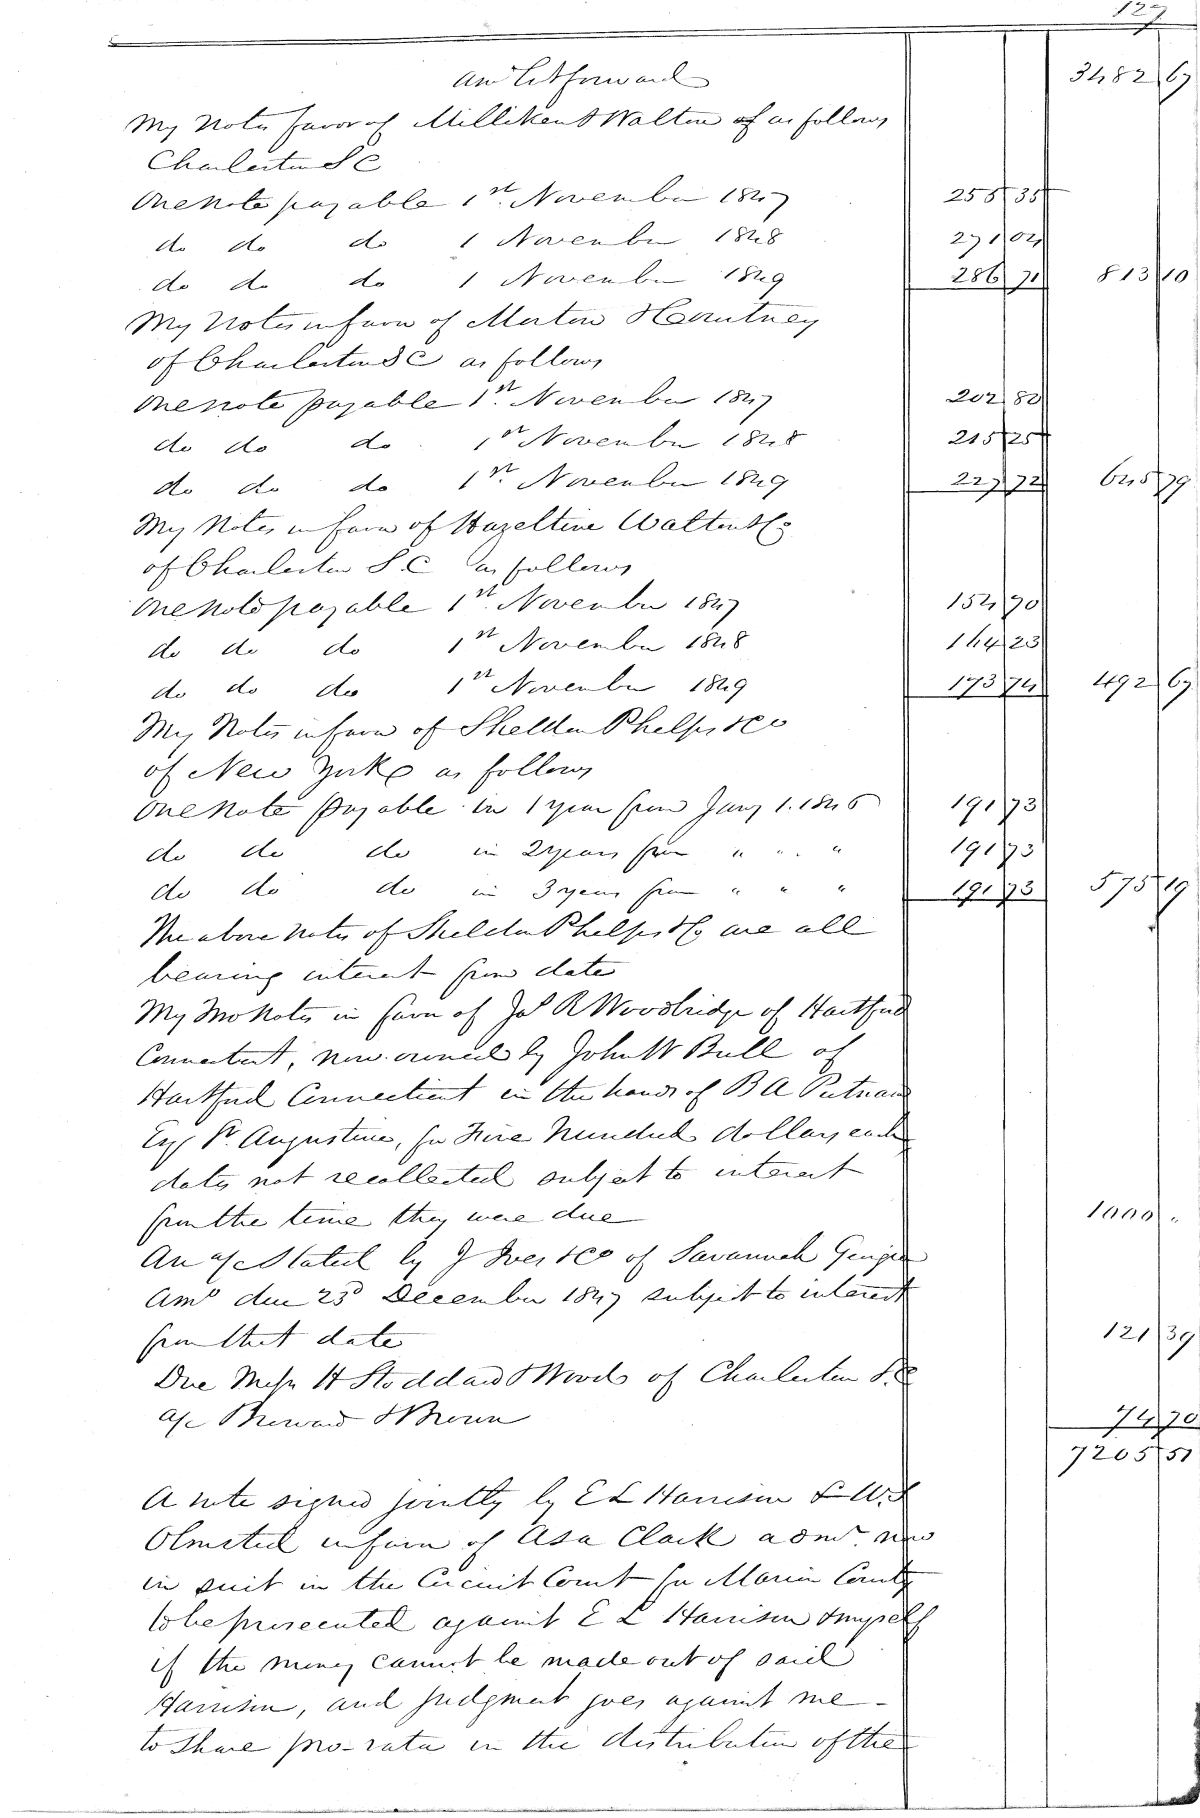 127
Amt bt forward 3482 67
My Notes favor of Milliken & Walton of as follows
Charleston S C
One Note payable 1st. November 1847 255 35
do do do 1 November 1848 271 04
do do do 1 November 1849 286 71 813 10
My Notes in favor of Morton & Courtney
of Charleston S C as follows
One note payable 1st. November 1847 202 82
do do do 1st November 1848 215 25
do do do 1st. November 1849 227 72 645 79
My Notes in favor of Hazeltine Walton & Co
of Charleston S. C as follows
One Note payable 1st. November 1847 154 70
do do do 1st November 1848 164 23
do do do 1st November 1849 173 74 492 67
My Notes in favor of Sheldon Phelps & Co
of New York as follows
One Note payable in 1 year from Jany 1. 1846 191 73
do do do in 2 years from " " " 191 73
do do do in 3 years from " " " 191 73 575 19
The above notes of Sheldon Phelps & Co are all
bearing interest from date
My two Notes in favor of Jas R Woodbridge of Hartford
Connecticut, now owned by John W Bull of
Hartford Connecticut in the hands of B A Putnam
Esqr St. Augustine, for Five Hundred dollars each
dates not recollected subject to interest
from the time they were due 1000 "
An a/c Stated by J Ives & Co of Savannah Georgia
Amt due 23d December 1847 subject to interest
from that date 121 39
Due Messrs H Stoddard & Wood of Charleston S. C
a/c Broward & Brown 74 70
7205 51
A note signed jointly by E L Harrison & W. S
Olmsted in favor of Asa Clark admr. now
in suit in the Circuit Court for Marion County
to be prosecuted against E L Harrison & myself
if the money cannot be made out of said
Harrison, and judgment goes against me -
to share pro-rata in the distribution of the